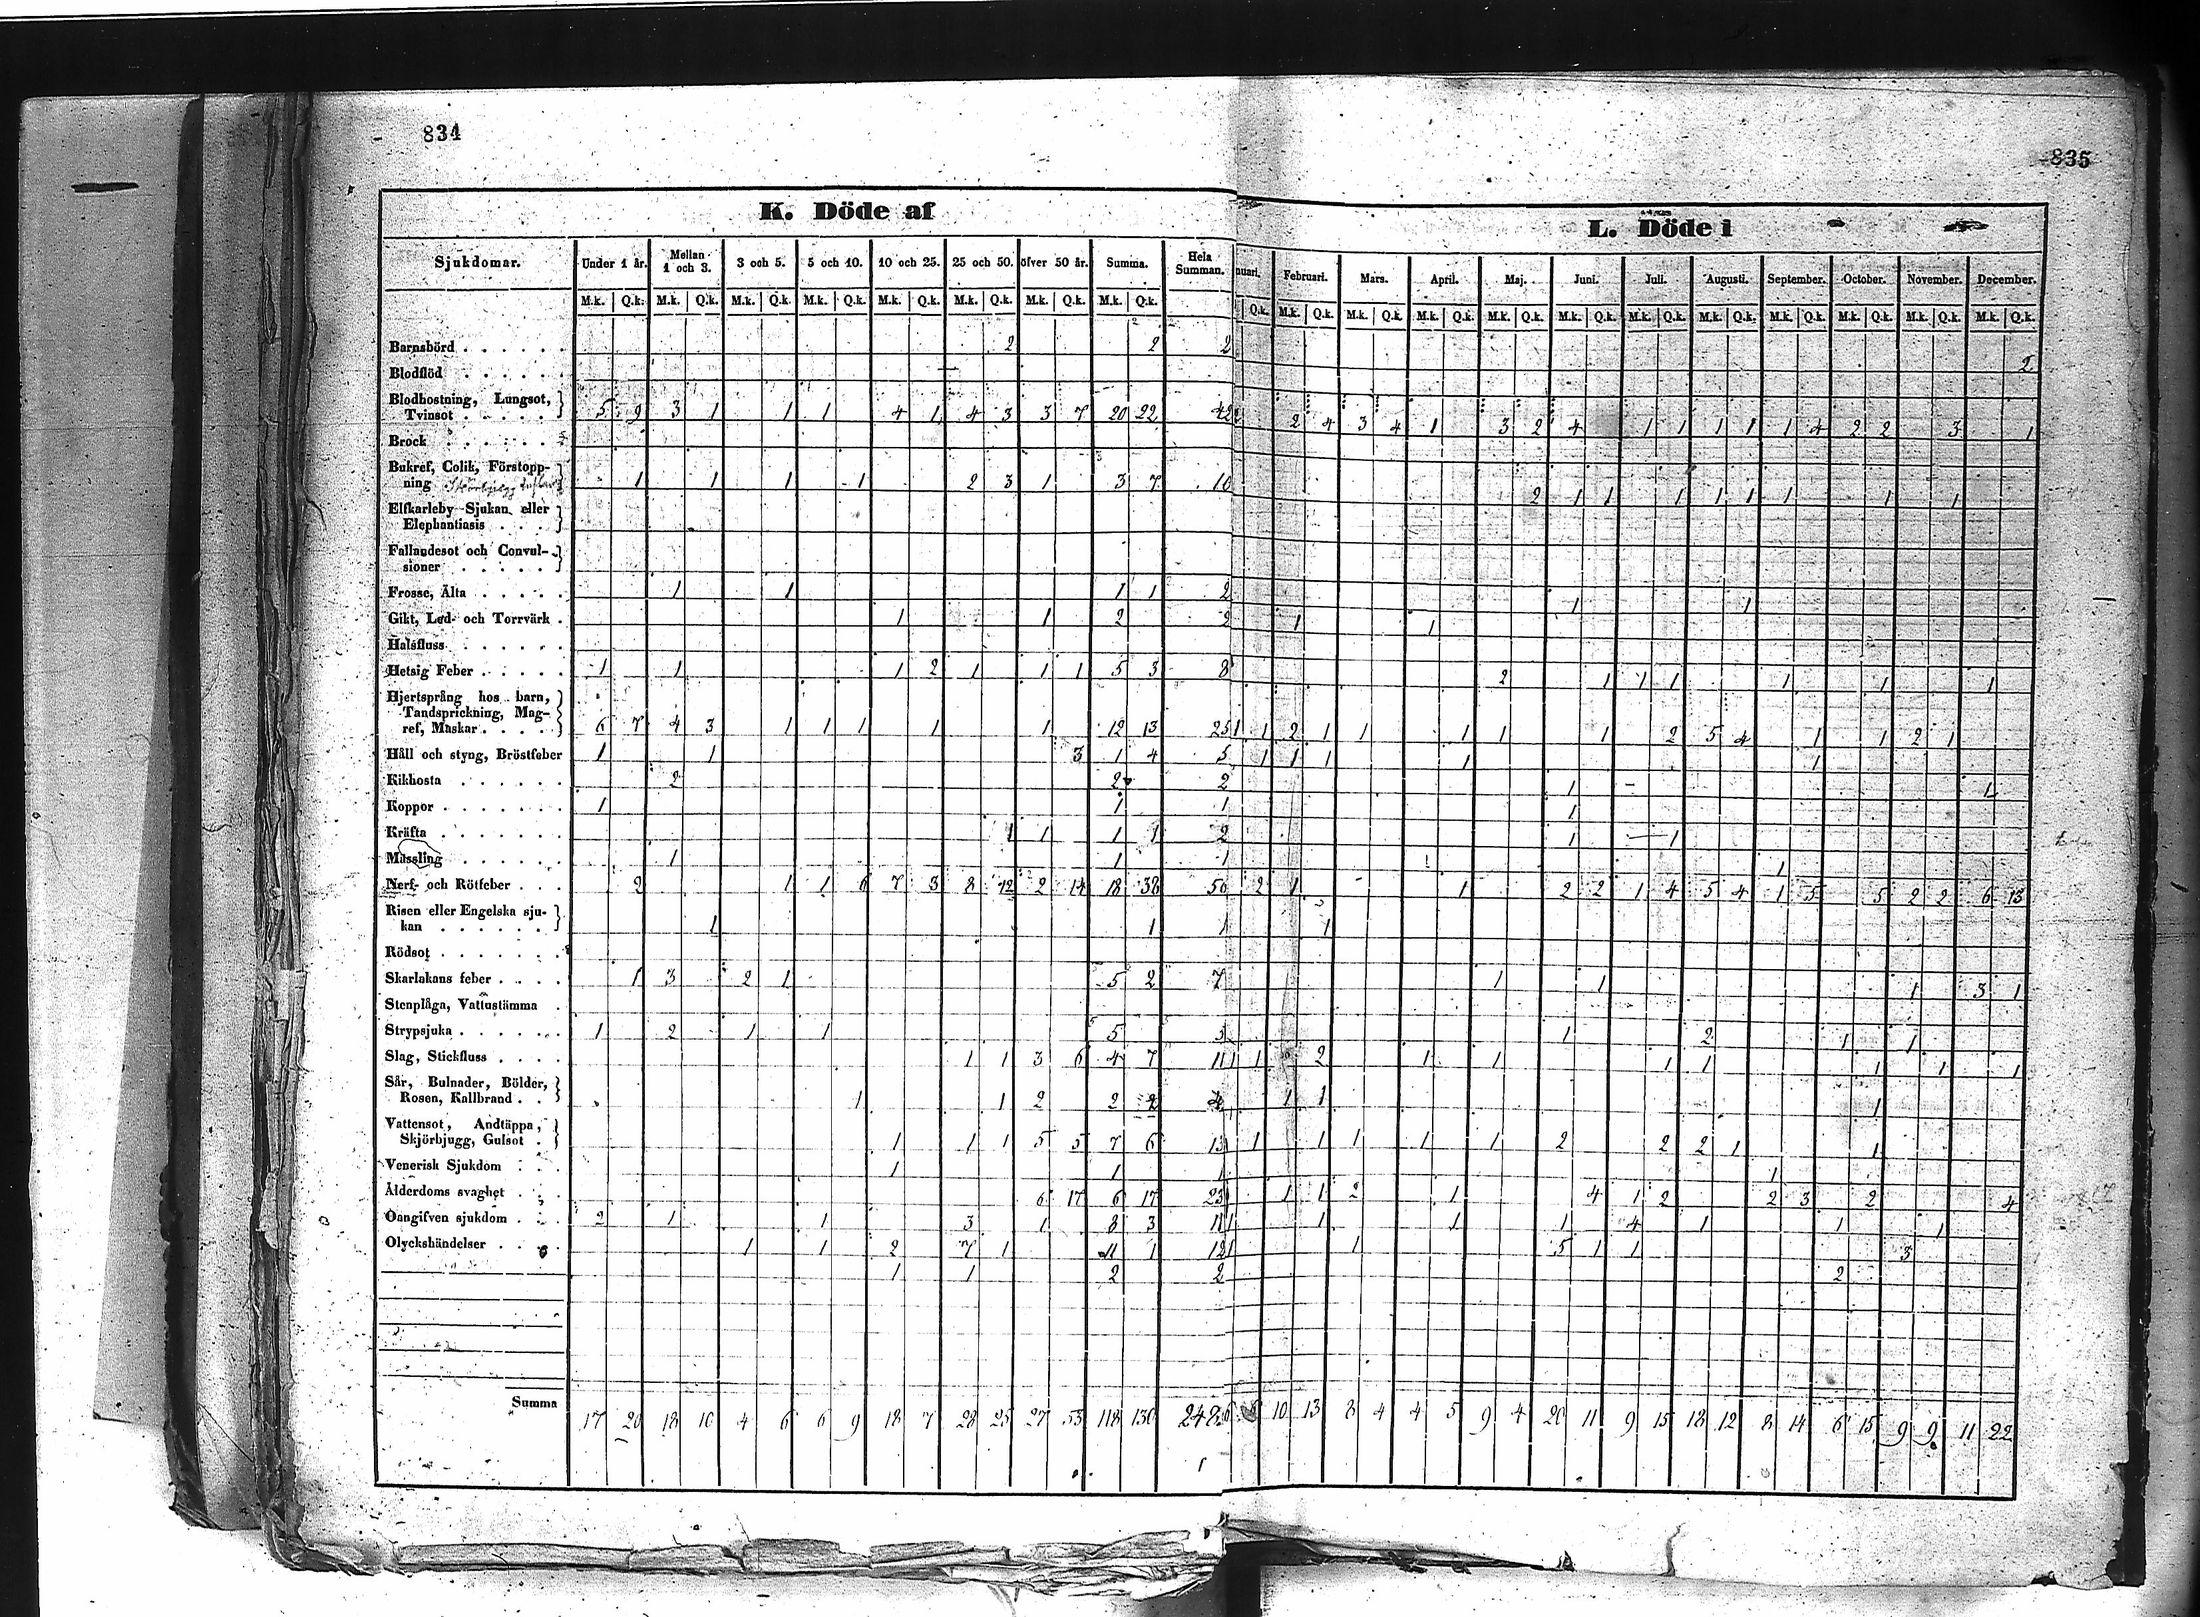 834
835
K. Döde af
L. Döde i
Sjukdomar. Under 1 år. Mellan 1 och 3. 3 och 5. 5 och 10. 10 och 25. 25 och 50. öfver 50 år. Summa. Hela Summan.
nuari. Februari. Mars. April. Maj. Juni. Juli. Augusti. September. October. November. December.
M.k. Q.k. M.k. Q.k. M.k. Q.k. M.k. Q.k. M.k. Q.k. M.k. Q.k. M.k. Q.k. M.k. Q.k.
Q.k. M.k. Q.k. M.k. Q.k. M.k. Q.k. M.k. Q.k. M.k. Q.k. M.k. Q.k. M.k. Q.k. M.k. Q.k. M.k. Q.k. M.k. Q.k. M.k. Q.k.
Barnsbörd 2 2 2 2
Blodflöd
Blodhostning, Lungsot,
Tvinsot 5 9 3 1 1 1 4 1 4 3 3 7 20 22 42 2 4 3 4 1 3 2 4 1 1 1 1 1 4 2 2 3 1
Brock
Bukref, Colik, Förstopp-
ning 1 1 1 1 2 3 1 3 7 10 2 1 1 1 1 1 1 1 1
Elfkarleby Sjukan eller
Elephantiasis
Fallandesot och Convul-
sioner
Frosse, Älta 1 1 1 1 2 1 1
Gikt, Led- och Torrvärk 1 1 2 2 1 1
Halsfluss
Hetsig Feber 1 1 1 2 1 1 1 5 3 8 2 1 1 1 1 1 1
Hjertsprång hos barn,
Tandsprickning, Mag-
ref, Maskar 6 7 4 3 1 1 1 1 1 12 13 25 1 1 2 1 1 1 1 1 2 5 4 1 1 2 1
Håll och styng, Bröstfeber 1 1 3 1 4 5 1 1 1 1 1
Kikhosta 2 2 2 1 1
Koppor 1 1 1 1
Kräfta 1 1 1 1 2 1 1
Mässling 1 1 1 1
Nerf- och Rötfeber 2 1 1 6 7 3 8 12 2 14 18 38 56 2 1 1 2 2 1 4 5 4 1 5 5 2 2 6 13
Risen eller Engelska sju-
kan 1 1 1 1
Rödsot
Skarlakans feber 1 3 2 1 5 2 7 1 1 1 3 1
Stenplåga, Vattustämma
Strypsjuka 1 2 1 1 5 5 1 2 1 1
Slag, Stickfluss 1 1 3 6 4 7 11 1 1 2 1 1 1 1 1 1 1
Sår, Bulnader, Bölder,
Rosen, Kallbrand 1 1 2 2 2 4 1 1 1
Vattensot, Andtäppa,
Skjörbjugg, Gulsot 1 1 1 5 5 7 6 13 1 1 1 1 1 2 2 2 1 1
Venerisk Sjukdom 1 1 1 1
Ålderdoms svaghet 6 17 6 17 23 1 1 2 1 4 1 2 2 3 2 4
Oangifven sjukdom 2 1 1 3 1 8 3 11 1 1 1 1 4 1 1 1
Olyckshändelser 1 1 2 7 1 11 1 12 1 1 5 1 1 3
1 1 2 2 2
Summa 17 20 18 10 4 6 6 9 18 7 28 25 27 53 118 130 248 10 13 8 4 4 5 9 4 20 11 9 15 18 12 8 14 6 15 9 9 11 22